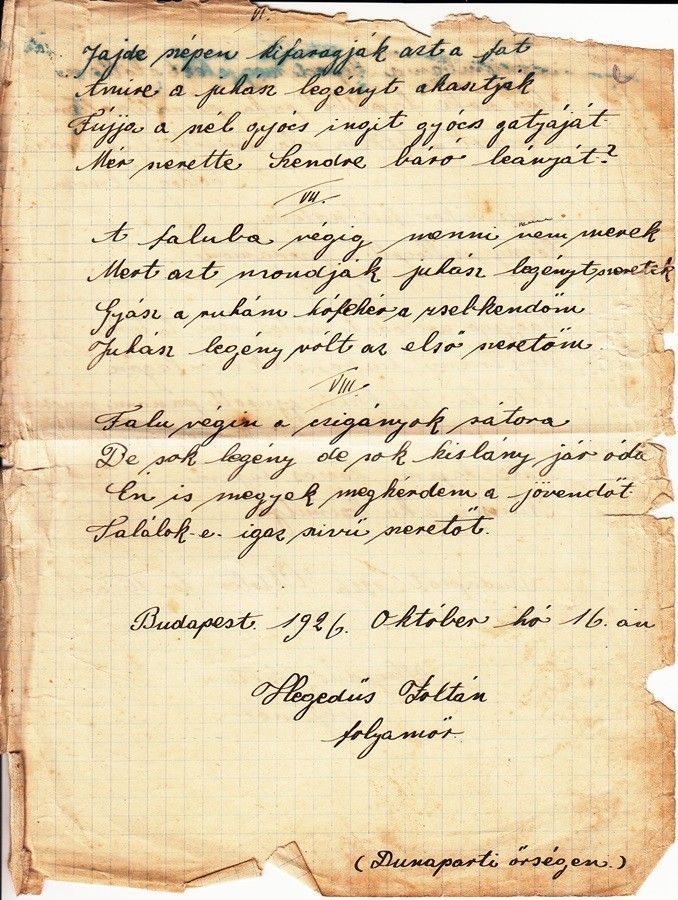 VI.
Jajde szépen kifaragják azt a fat
Amire a juhász legényt akasztják
Fújja a szél gyócs ingit gyócs gatyáját
Mér szerette Szendre báró leányját?
VII.
A faluba végig menni nem merek
Mert azt mondják juhász legényt szeretek
Gyász a ruhám hófehér a zsebkendőm
Juhász legény vólt az első szeretőm
VIII.
Falu végin a czigányok sátora
De sok legény de sok kislány jár óda
Én is megyek megkérdem a jövendőt
Találok-e- igaz szivű szeretőt.
Budapest. 1926. Október hó 16.-án
Hegedüs Zoltán
folyamőr.
(Dunaparti őrségen.)